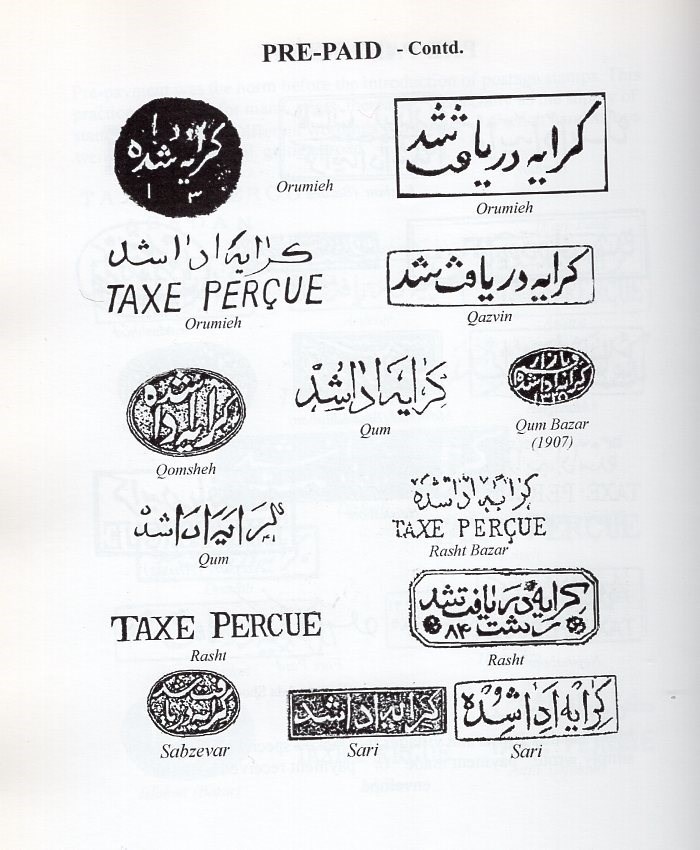 PRE-PAID - Contd.
کرایه شده
۱ ۳
Orumieh
کرایه دریافت شد
Orumieh
کرایه ادا شد
TAXE PERÇUE
Orumieh
کرایه دریافت شد
Qazvin
کرایه ادا شده
Qomsheh
کِرایَه اَدا شُدْ
Qum
قم بازار
کرایه ادا شده
۱۳۲۵
Qum Bazar
(1907)
کرایه ادا شد
Qum
کرایه ادا شده
TAXE PERÇUE
Rasht Bazar
TAXE PERCUE
Rasht
کرایه دریافت شد
رشت ۸۴
Rasht
Sabzevar
کرایه ادا شد
Sari
کِرایه اَدا شُدِه
Sari